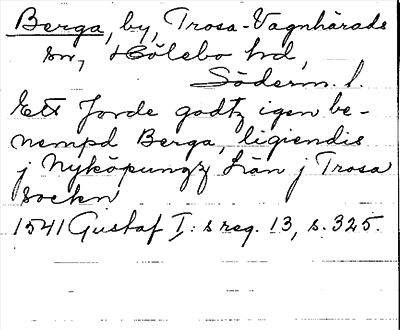 Berga, by, Trosa-Vagnhärads
sn, Hölebo hd,
Söderm. l.
Ett Jorde godtz igen be-
nempd Berga, ligiendis
j Nyköpungz Län j Trosa
sockn
1541 Gustaf I: s reg. 13, s. 325.